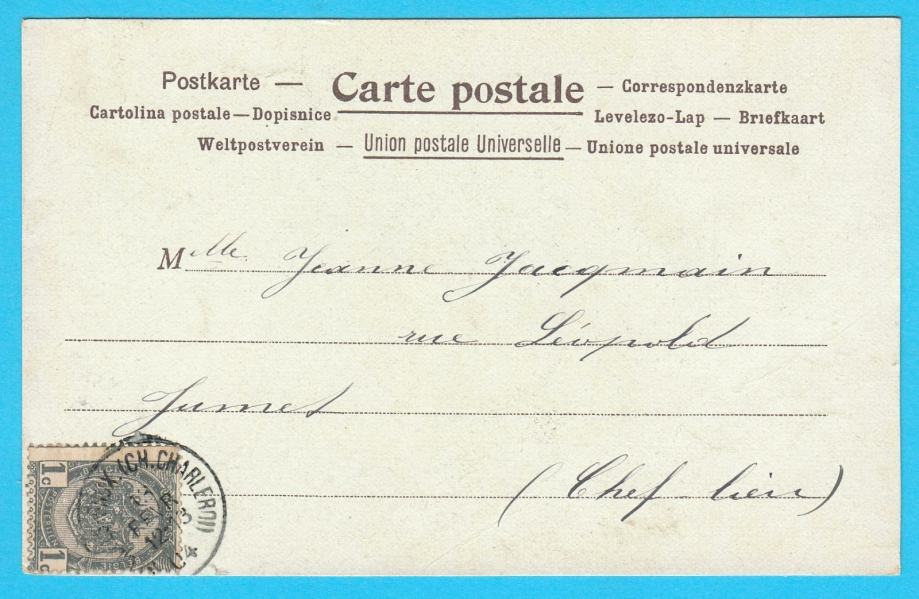 Postkarte — Carte postale — Correspondenzkarte
Cartolina postale — Dopisnice Levelezo-Lap — Briefkaart
Weltpostverein — Union postale Universelle — Unione postale universale
Melle Jeanne Jacqmain
rue Léopold
Jumet
(Chef-lieu)
(CH. CHARLEROI)
1c
1c